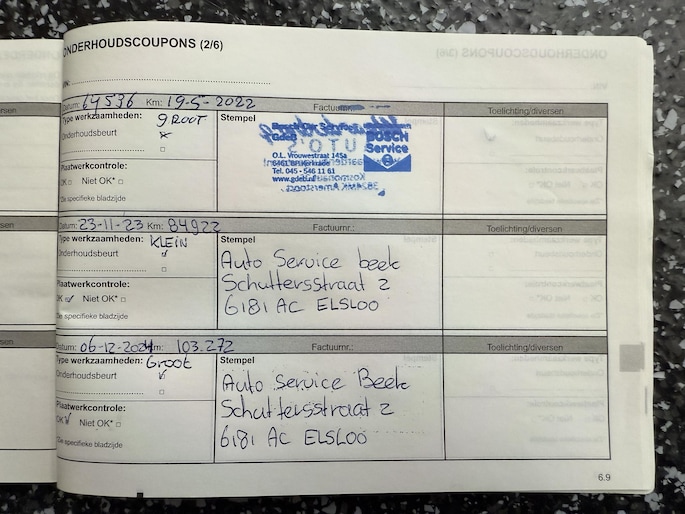 ONDERHOUDSCOUPONS (2/6)
Datum: 64536 Km: 19-5-2022 Factuurnr.: Toelichting/diversen
Type werkzaamheden: GROOT
Onderhoudsbeurt
Stempel
BOSCH
Service
O.L. Vrouwestraat 145a
Tel. 045 - 546 11 61
www.gdeb.nl
Plaatwerkcontrole:
OK Niet OK*
*Zie specifieke bladzijde
Datum: 23-11-23 Km: 84922 Factuurnr.: Toelichting/diversen
Type werkzaamheden: KLEIN
Onderhoudsbeurt
Stempel
Auto Service beek
Schuttersstraat 2
6181 AC ELSLOO
Plaatwerkcontrole:
OK Niet OK*
*Zie specifieke bladzijde
Datum: 06-12-2024 Km: 103.272 Factuurnr.: Toelichting/diversen
Type werkzaamheden: Groot
Onderhoudsbeurt
Stempel
Auto Service Beek
Schuttersstraat 2
6181 AC ELSLOO
Plaatwerkcontrole:
OK Niet OK*
*Zie specifieke bladzijde
6.9